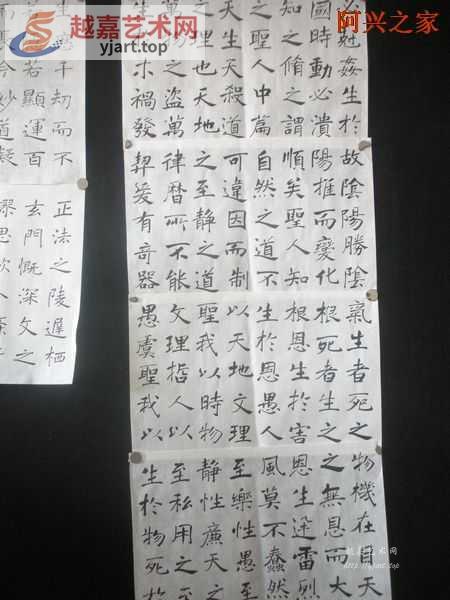 越嘉艺术网
yjart.top
阿兴之家
尅姦生於
國時動必潰
知之脩之謂
之聖人中篇
天生天殺道
之理也天地
之盗萬
木禍發
故陰陽勝陰
陽推而變化
順矣聖人知
自然之道不
可違因而制
之至静之道
律曆所不能
契爰有奇器
氣生者死之
根死者生之
根恩生於害
生於恩愚人
以天地文理
聖我以時物
文理哲人以
愚虞聖我以
物機在目天
之無恩而大
恩生迅雷烈
風莫不蠢然
至樂性愚至
静性廉天之
至私用之
生於物死於
千劫而不
若顯運百
妙道凝
正法之陵遲栖
玄門慨深文之
思欲分
越嘉艺术网